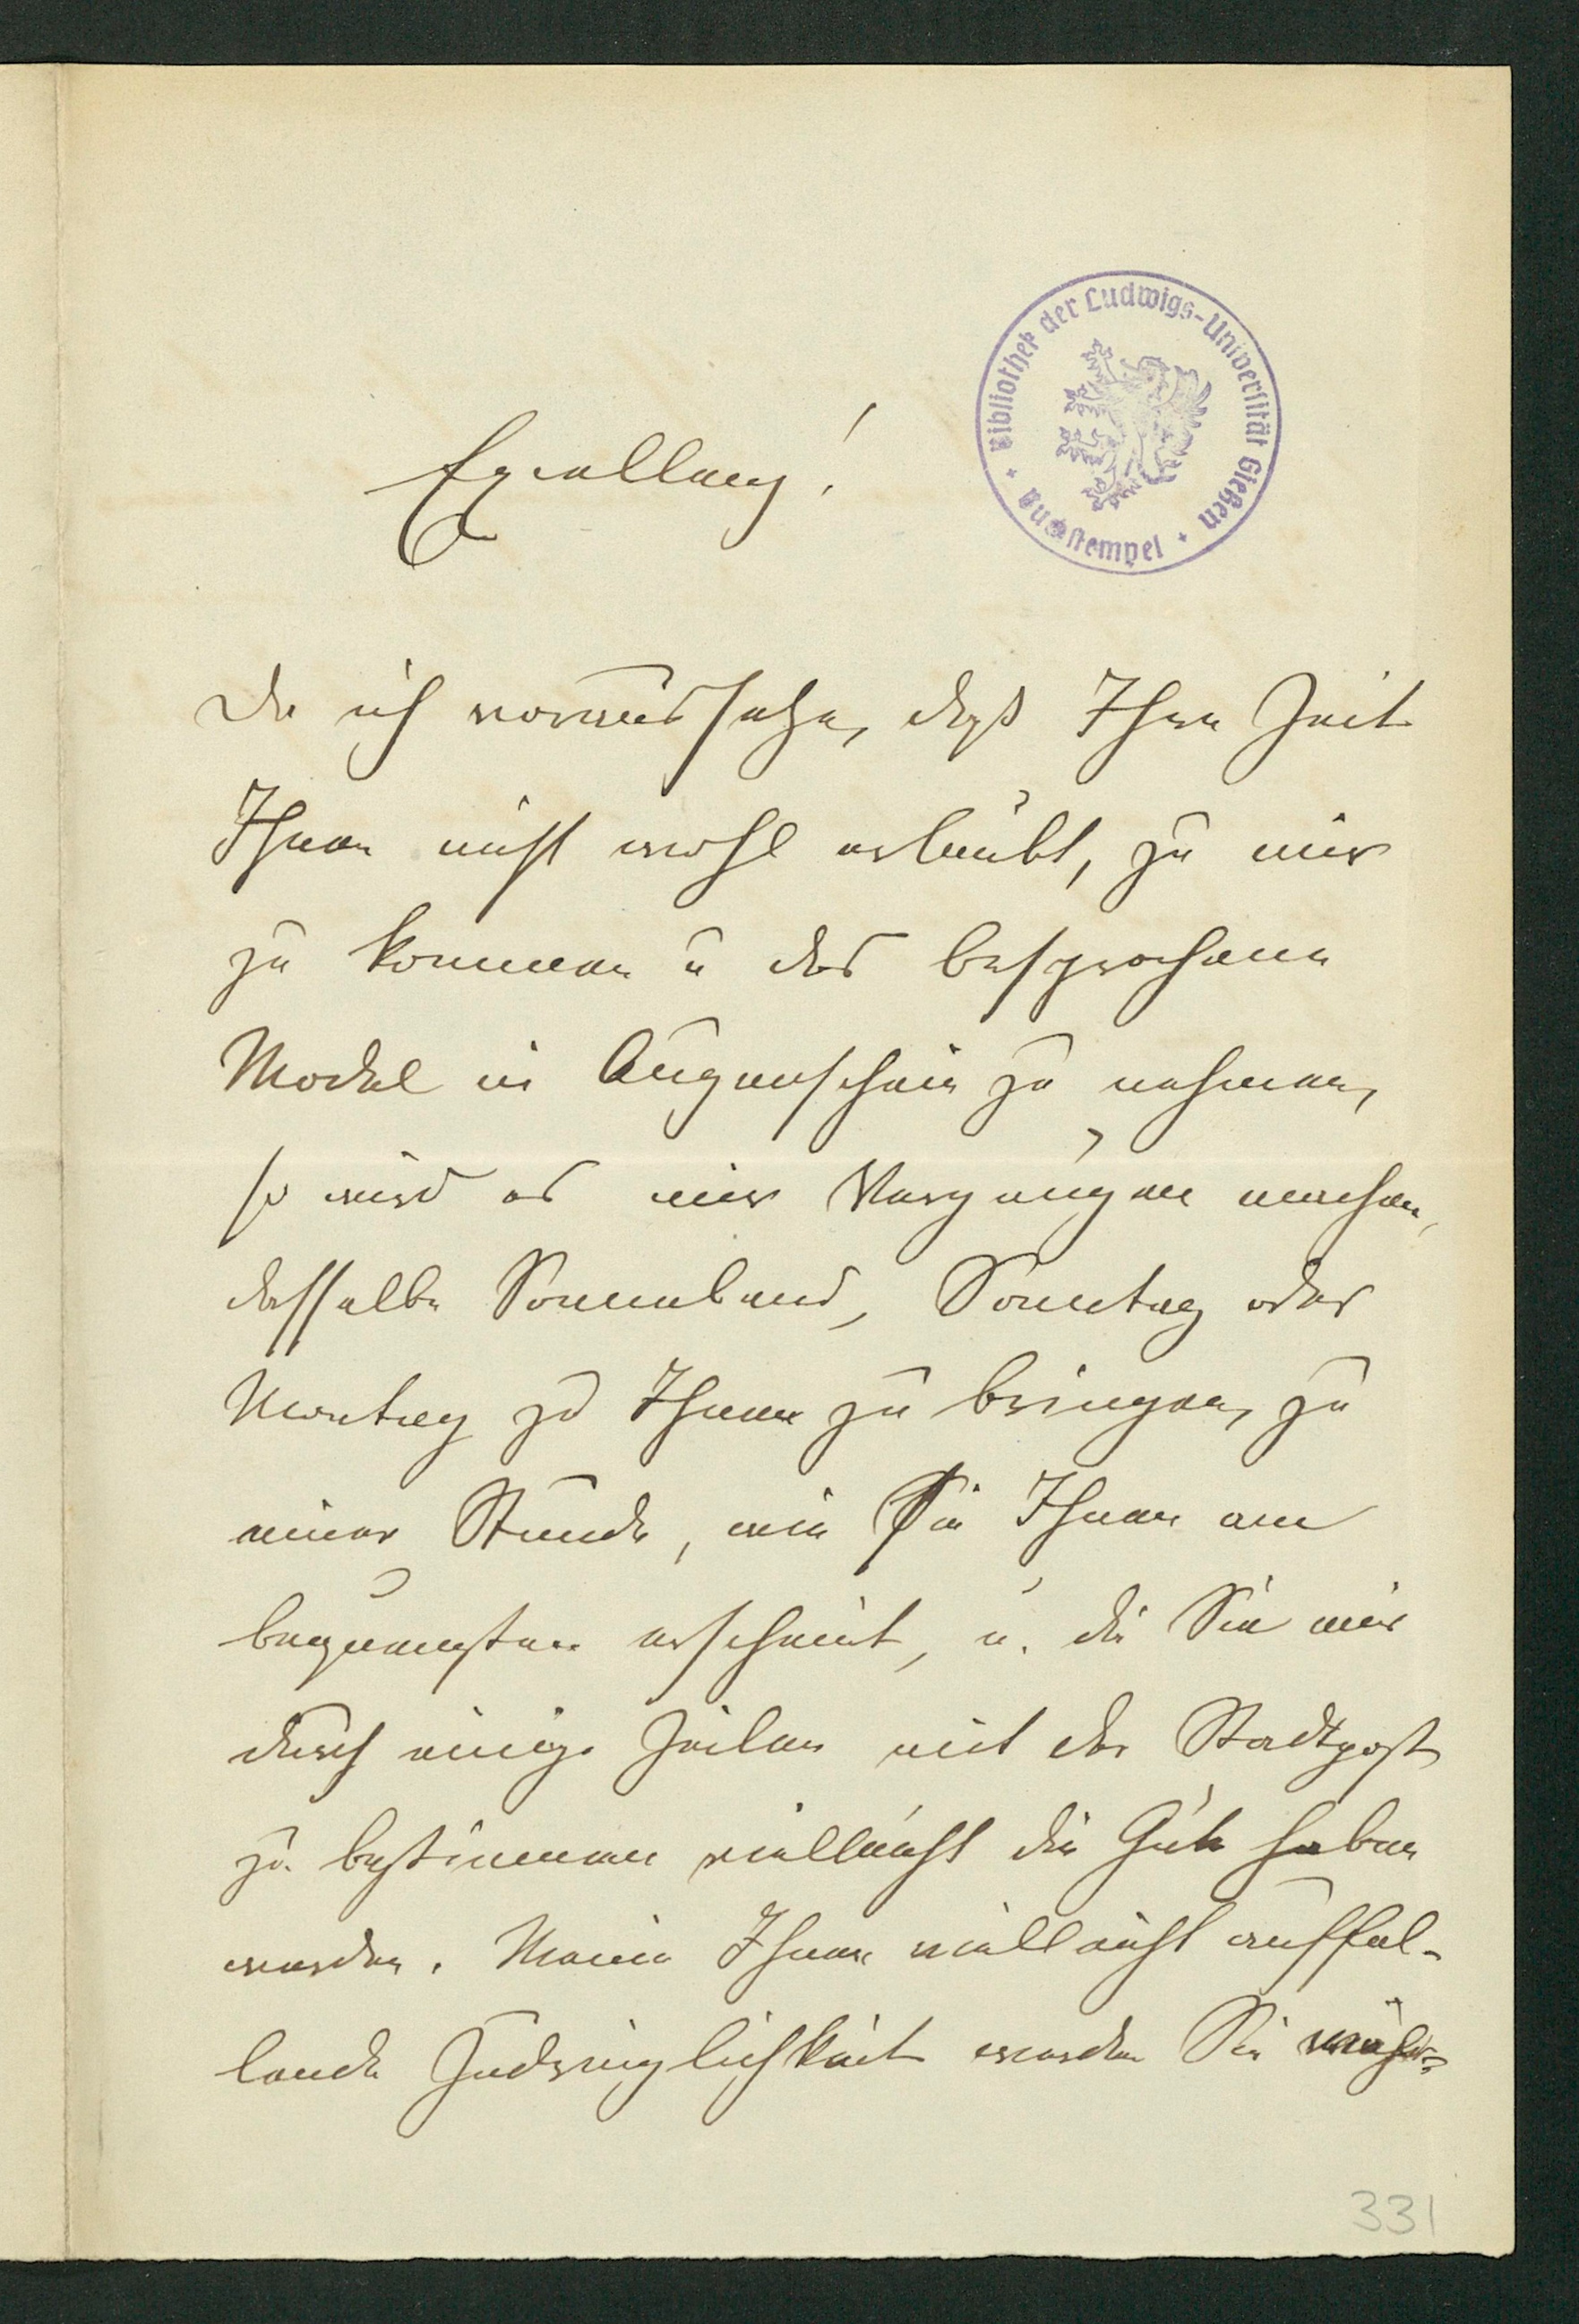 Bibliothek der Ludwigs-Universität Gießen
Buchstempel
Exzellenz!
Da ich voraussetze, daß Ihre Zeit
Ihnen nicht wohl erlaubt, zu mir
zu kommen u das besprochene
Model in Augenschein zu nehmen,
so wird es mir Vergnügen machen,
dasselbe Sonnabend, Sonntag oder
Montag zu Ihnen zu bringen, zu
einer Stunde, wie Sie Ihnen am
bequemsten erscheint, u. die Sie mir
durch einige Zeilen mit der Stadtpost
zu bestimmen vielleicht die Güte haben
werden. Meine Ihnen vielleicht auffal-
lende Zudringlichkeit werden Sie
331